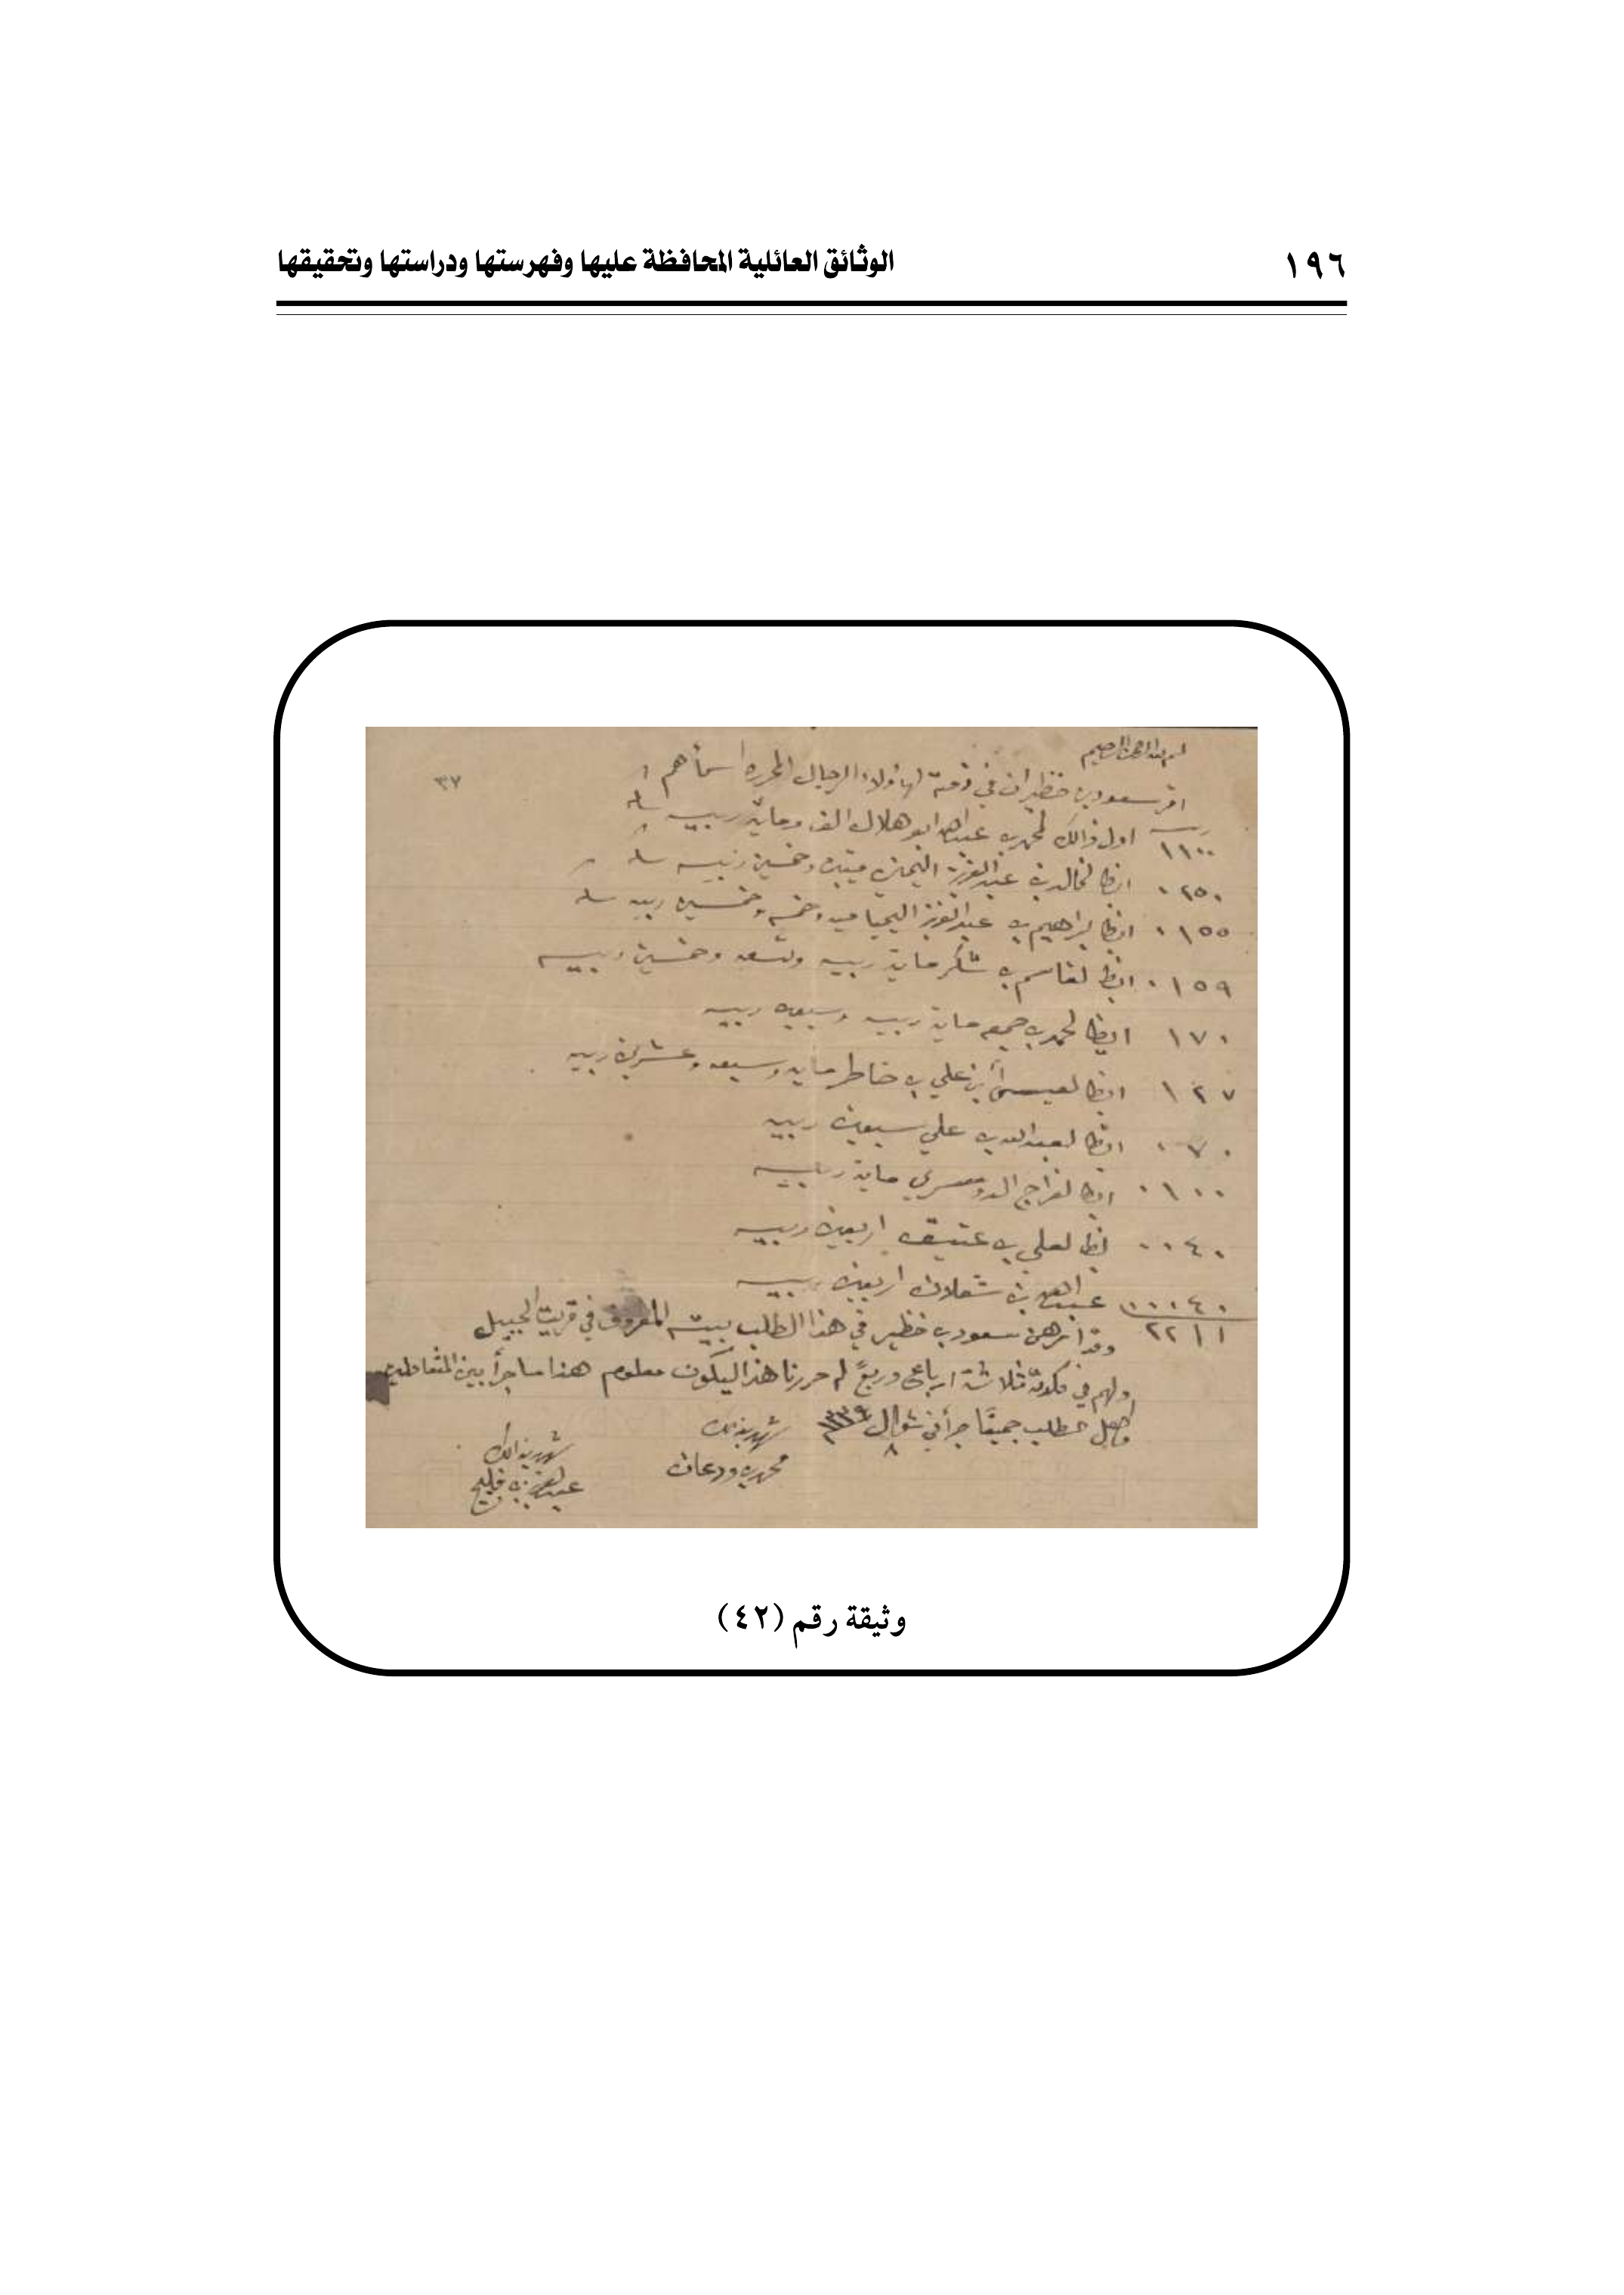 ١٩٦
الوثائق العائلية المحافظة عليها وفهرستها ودراستها وتحقيقها
بسم الله الرحمن الرحيم
٣٧
اقر سعود بن خظير ان في ذمة لهاؤلاء الرجال المحرره اسمأهم
ربيه
١١٠٠ اول ذالك لمحمد بن عبدالله ابو هلال الف وماية ربيه
٠٢٥٠ ايظا لخالد بن عبدالعزيز اليحيى ميتين وخمسين ربيه
٠١٥٥ ايظا لبراهيم بن عبدالعزيز اليحيا ميه وخمسه وخمسين ربيه
٠١٥٩ ايظا لقاسم بن شكر ماية ربيه وتسعه وخمسين ربيه
١٧٠ ايظا لمحمد بن جمعه ماية ربيه وسبعين ربيه
١٢٧ ايظا لعيسىأ بن علي بن خاطر مايه وسبعه وعشرين ربيه
٠٧٠ ايظا لعبدالله بن علي سبعين ربيه
٠١٠٠ ايظا لفراج الدوسري ماية ربيه
٠٠٤٠ ايظا لعلي بن عتيق اربعين ربيه
٠٠٠٤٠ عبدالله بن شعلان اربعين ربيه
٢٢١١ وقد ارهن سعود بن خظير في هذا الطلب بيته المعروف في قرية الجبيل
ولهم في ثلاثة ارباع وربع حررنا هذا ليكون معلوم هذا ما جرأ بين المتعاطين
الطلب جميعًا جرأ في شوال ١٣٣٩
٨
شهد بذالك
محمد بن ودعان
شهد بذالك
عبدالعزيز بن فليج
وثيقة رقم (٤٢)